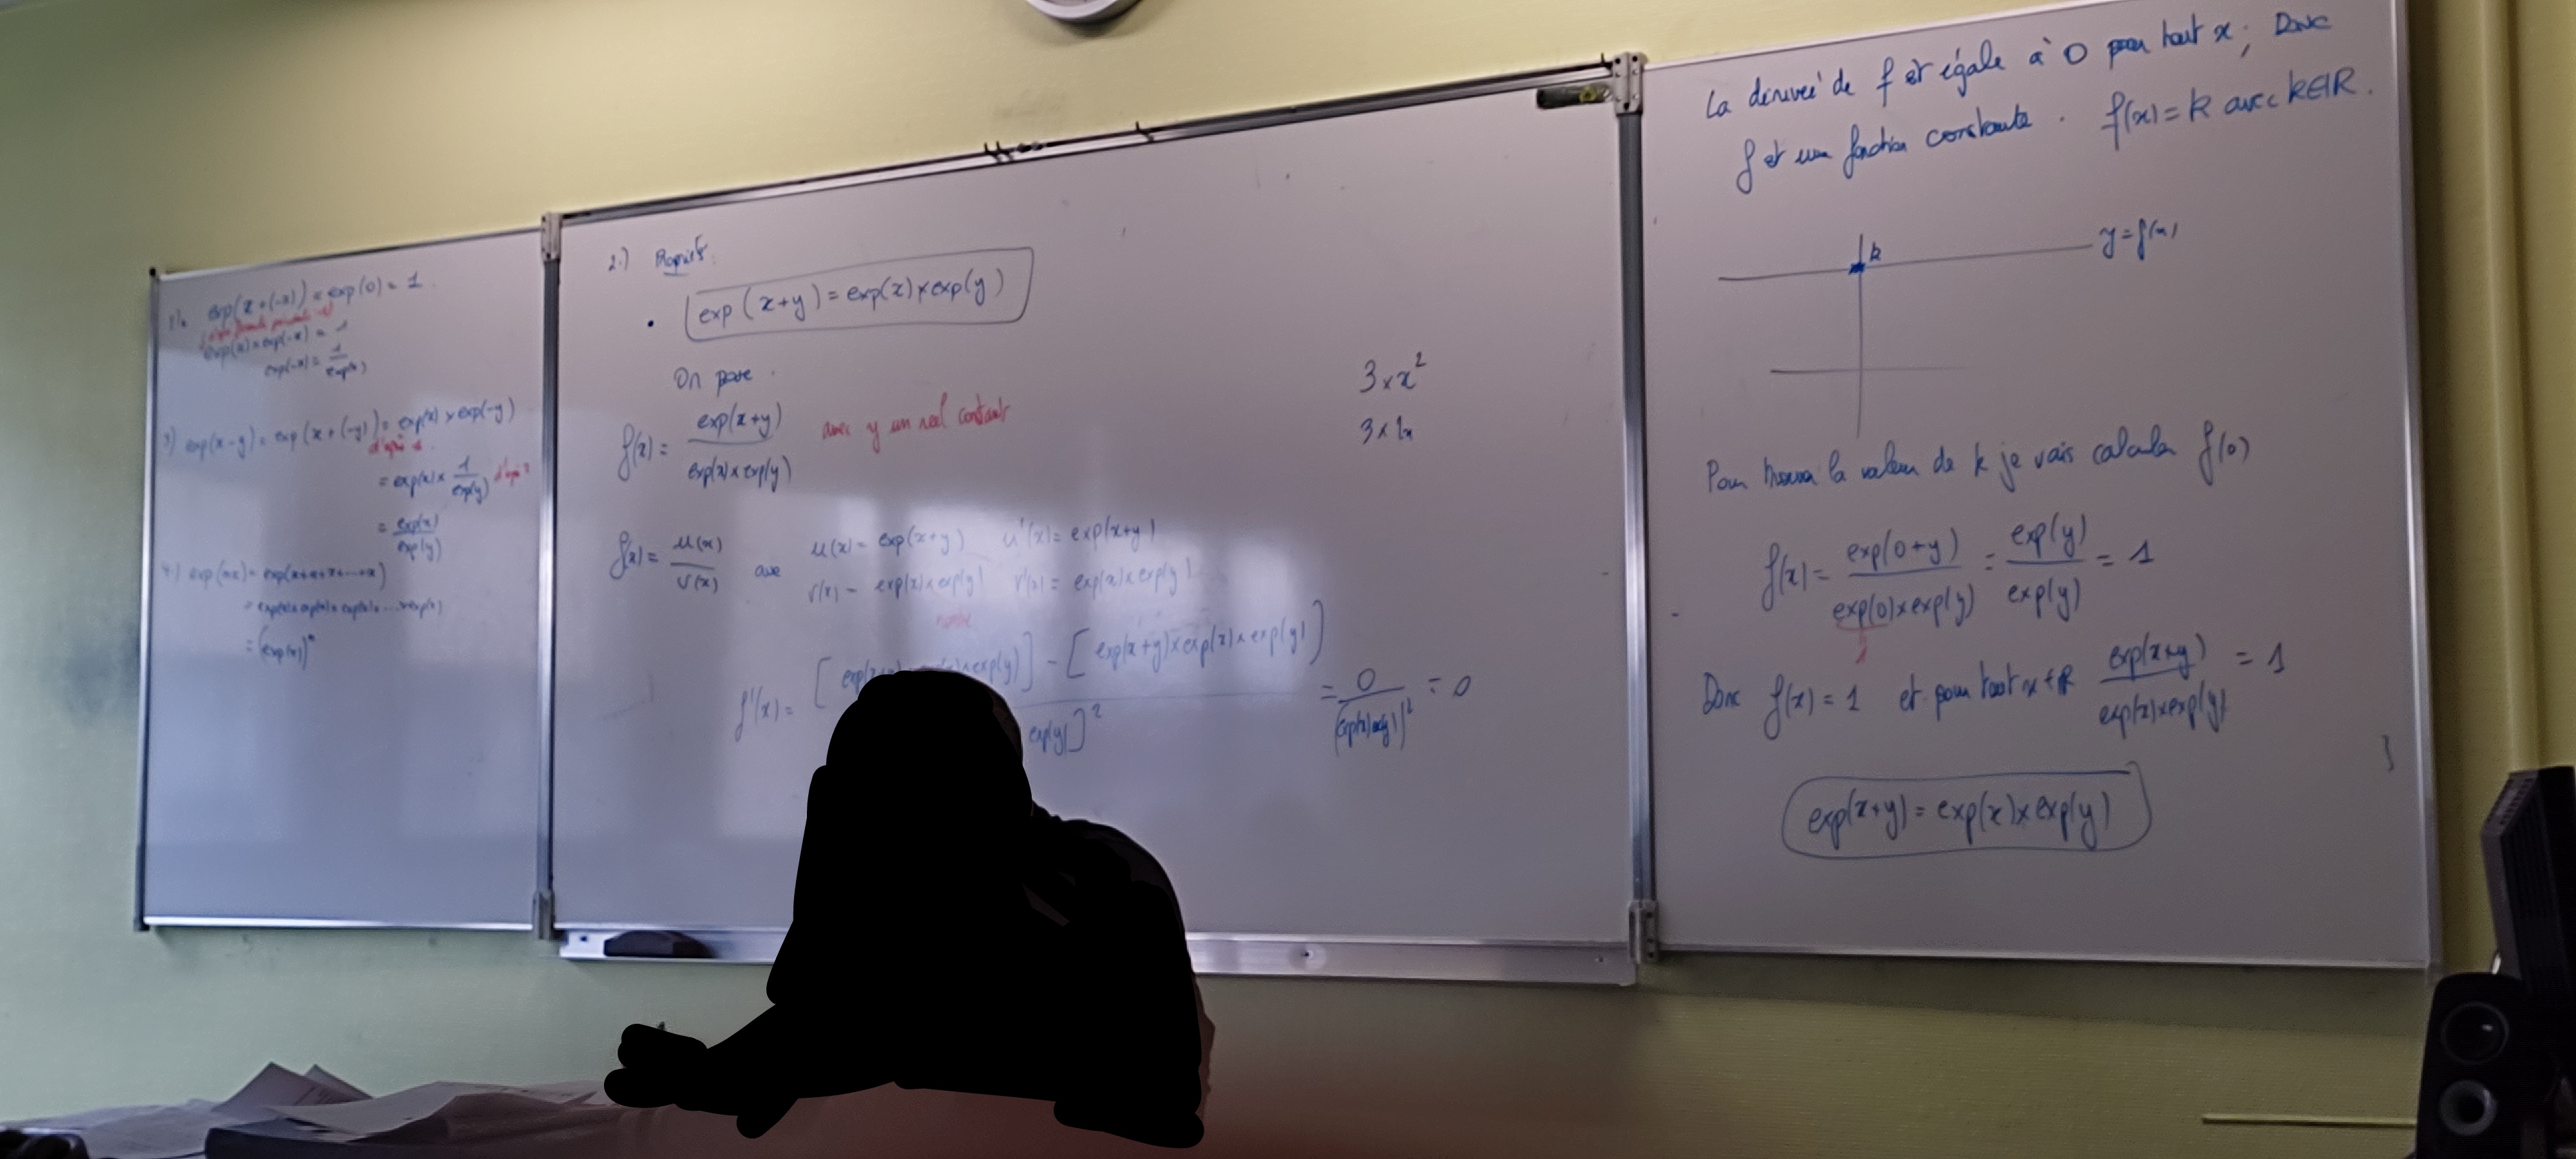 exp(x+(-x)) = exp(0) = 1.
exp(x) × exp(-x) = 1
exp(-x) = 1/exp(x)
3) exp(x-y) = exp(x+(-y)) = exp(x) × exp(-y)
= exp(x) × 1/exp(y)
= exp(x)/exp(y)
4) exp(nx) = exp(x+x+x+...+x)
= exp(x) × exp(x) × exp(x) × ... × exp(x)
= (exp(x))^n
2.)
• exp(x+y) = exp(x) × exp(y)
On pose.
f(x) = exp(x+y)/(exp(x) × exp(y)) avec y un réel constant
3 × x²
f(x) = u(x)/v(x) avec u(x) = exp(x+y) u'(x) = exp(x+y)
v(x) = exp(x) × exp(y) v'(x) = exp(x) × exp(y)
f'(x) = [ exp(y)] - [exp(x+y) × exp(x) × exp(y)] / exp(y)]² = 0/(exp(x) exp(y))² = 0
La dérivée de f est égale à 0 pour tout x ; Donc
f est une fonction constante. f(x) = k avec k∈ℝ.
k y = f(x)
Pour trouver la valeur de k je vais calculer f(0)
f(x) = exp(0+y)/(exp(0) × exp(y)) = exp(y)/exp(y) = 1
1
Donc f(x) = 1 et pour tout x∈ℝ exp(x+y)/(exp(x) × exp(y)) = 1
exp(x+y) = exp(x) × exp(y)